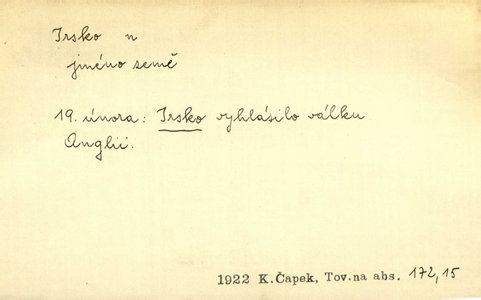 Irsko n
jméno země
19. února: Irsko vyhlásilo válku
Anglii.
1922 K.Čapek, Tov.na abs. 172,15